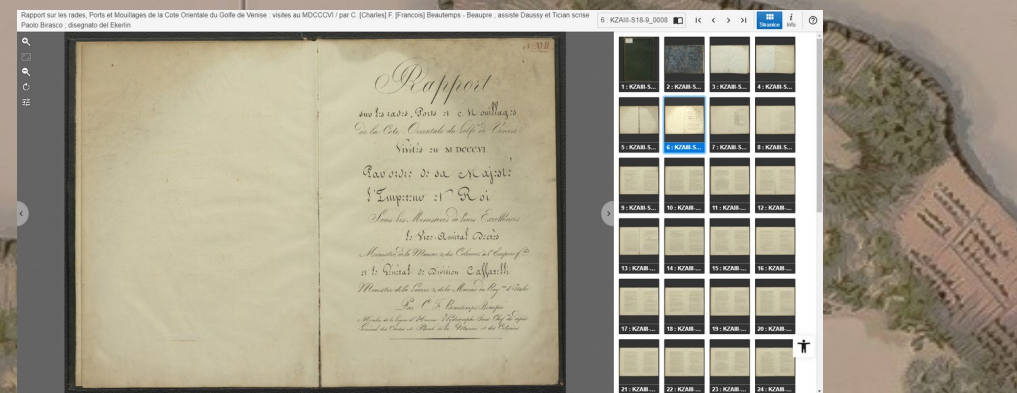 Rapport sur les rades, Ports et Mouillages de la Cote Orientale du Golfe de Venise : visites au MDCCCVI / par C. [Charles] F. [Francois] Beautemps - Beaupre ; assiste Daussy et Tician scrise
Paolo Birasco ; disegnato del Ekerlin
6 : KZAIII-S18-9_0008
Stranice
Info
Rapport
sur les rades, Ports et Mouillages
de la Cote Orientale du Golfe de Venise
Visités en MDCCCVI
Par ordre de sa Majesté
l'Empereur et Roi
Sous les Ministères de leurs Excellences
le Vice-Amiral Decrès
Ministre de la Marine & des Colonies de l'Empire
et le Général de Division Caffarelli
Ministre de la Guerre & de la Marine du d'Italie
Par C. F. Beautemps Beaupré
Membre de la légion d'Honneur Hydrographe Sous Chef du dépôt
Général des Cartes et Plans de la Marine et des Colonies
1 : KZAIII-S...
2 : KZAIII-S...
3 : KZAIII-S...
4 : KZAIII-S...
5 : KZAIII-S...
6 : KZAIII-S...
7 : KZAIII-S...
8 : KZAIII-S...
9 : KZAIII-S...
10 : KZAIII-...
11 : KZAIII-...
12 : KZAIII-...
13 : KZAIII-...
14 : KZAIII-...
15 : KZAIII-...
16 : KZAIII-...
17 : KZAIII-...
18 : KZAIII-...
19 : KZAIII-...
20 : KZAIII-...
21 : KZAIII-...
22 : KZAIII-...
23 : KZAIII-...
24 : KZAIII-...